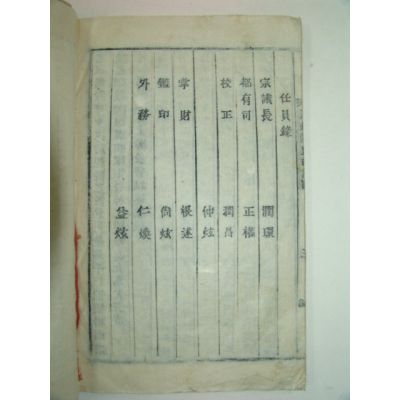 任員錄
宗議長 潤璟
都有司 正權
校正 潤昌
仲炫
掌財 根述
監印 尙炫
外務 仁煥
益炫